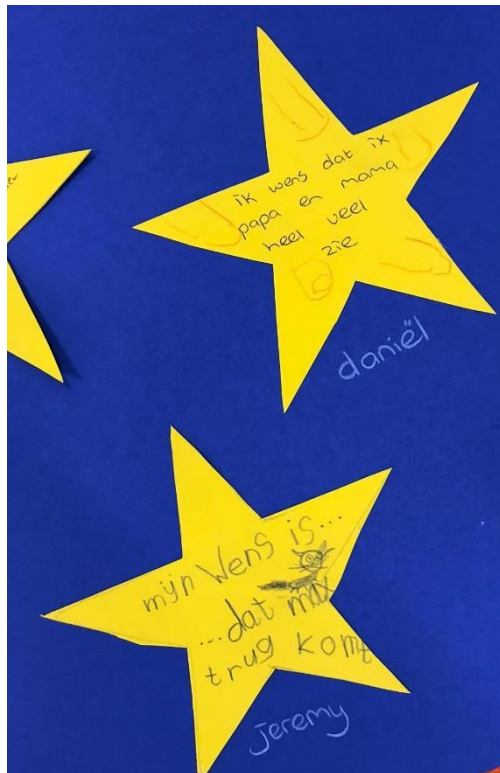 ik wens dat ik
papa en mama
heel veel
zie
daniël
mijn wens is...
...dat max
trug komt
jeremy